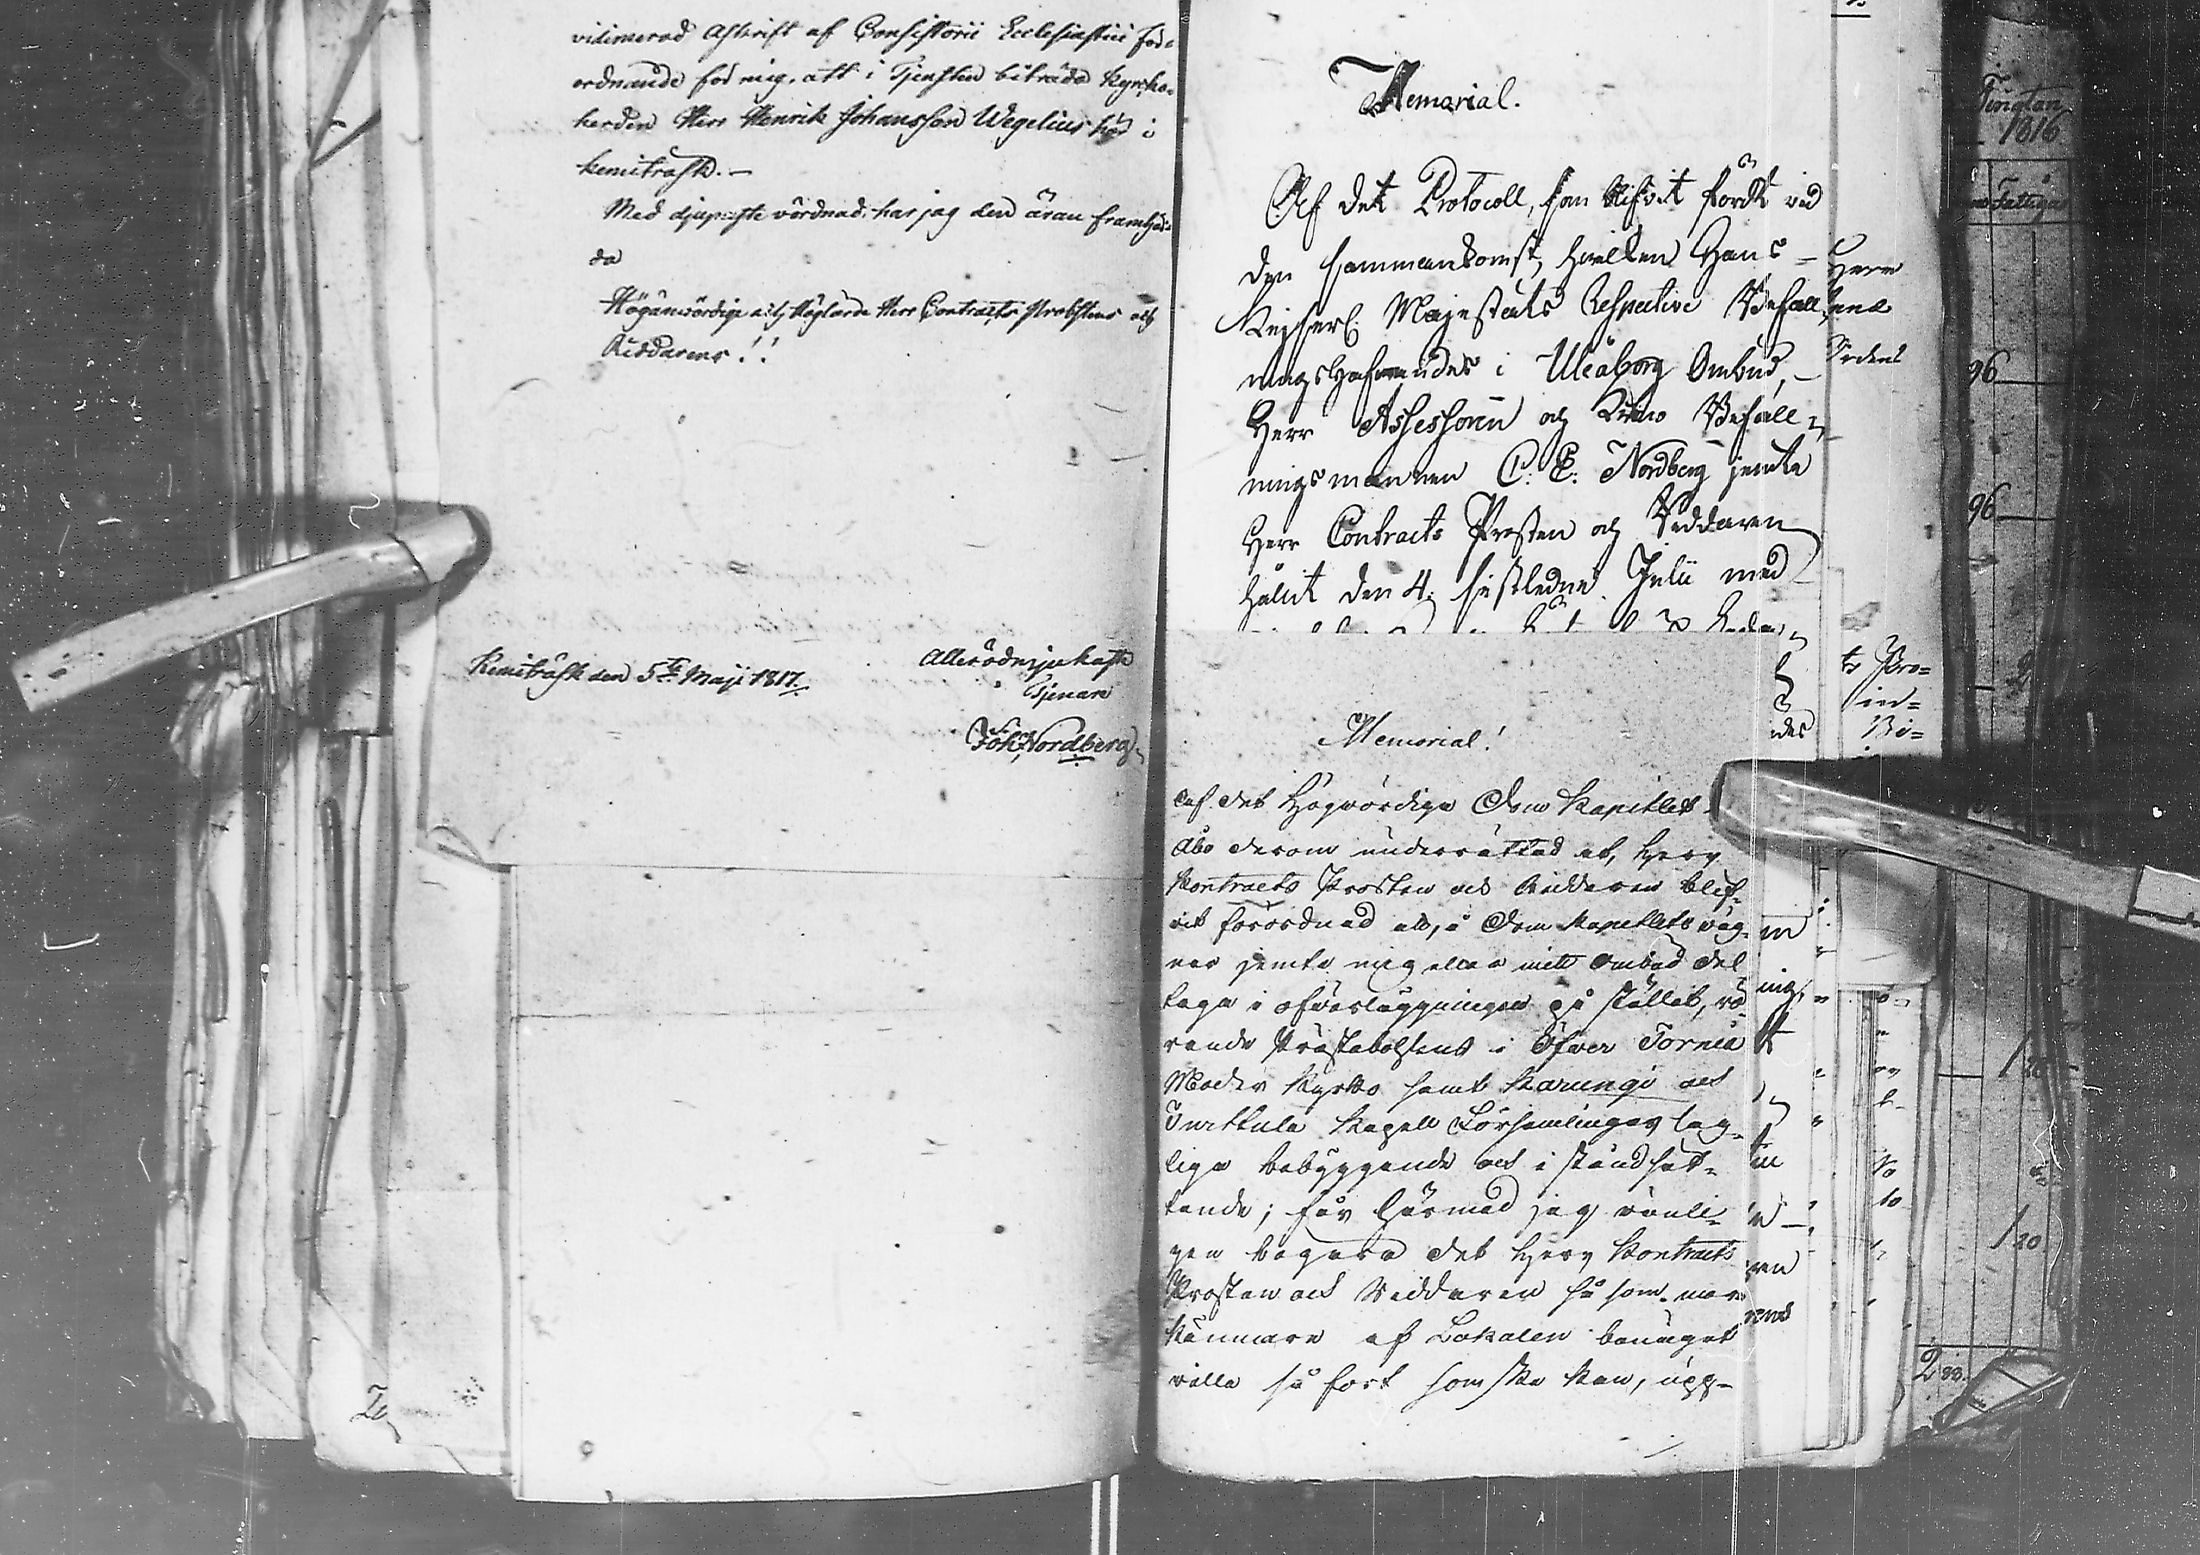 vidimerad Afskrift af Consistorii Ecclesiastici för-
ordnande för mig, att i Tjensten biträda Kyrcko-
herden Herr Henrik Johansson Wegelius här i
Kemiträsk. —
Med djupaste vördnad har jag den äran framhär-
da
Högärevördige och Höglärde Herr Contracts Probstens och
Riddarens!!
Kemiträsk den 5te Maji 1817.
Allerödmjukaste
Tjenare
Joh. Nordberg
Memorial.
Af det Protocoll, som blifvit fördt vid
den sammankomst, hvilken Hans
Kejserl. Majestäts Respective Befall-
ningshafvandes i Uleåborg Ombud,
Herr Assessoren och Krono Befall-
ningsmannen C. E. Nordberg jemte
Herr Contracts Prosten och Riddaren
hållit den 4. sistledne Julii med
Memorial!
Af det Högvördiga Dom Kapitlet
Åbo derom underrättad at, Herr
Kontracts Prosten och Riddaren blif-
vit förordnad at, å Dom Kapitlets väg-
nar jemte mig eller mitt ombud del
taga i öfverläggningen på stället, rö-
rande Prästebolstens i Öfver Torneå
Moder Kyrko samt Karungi och
Turttula Kapell Församlingar lag-
liga bebyggande och i ståndsät-
tande; får härmed jag vänli-
gen begära det Herr Kontracts
Prosten och Riddaren så som när
kännare af Lokalen benäget
ville så fort som ske kan, upp-
Tingtan
1816
Fattigas
96
96
1 20
2